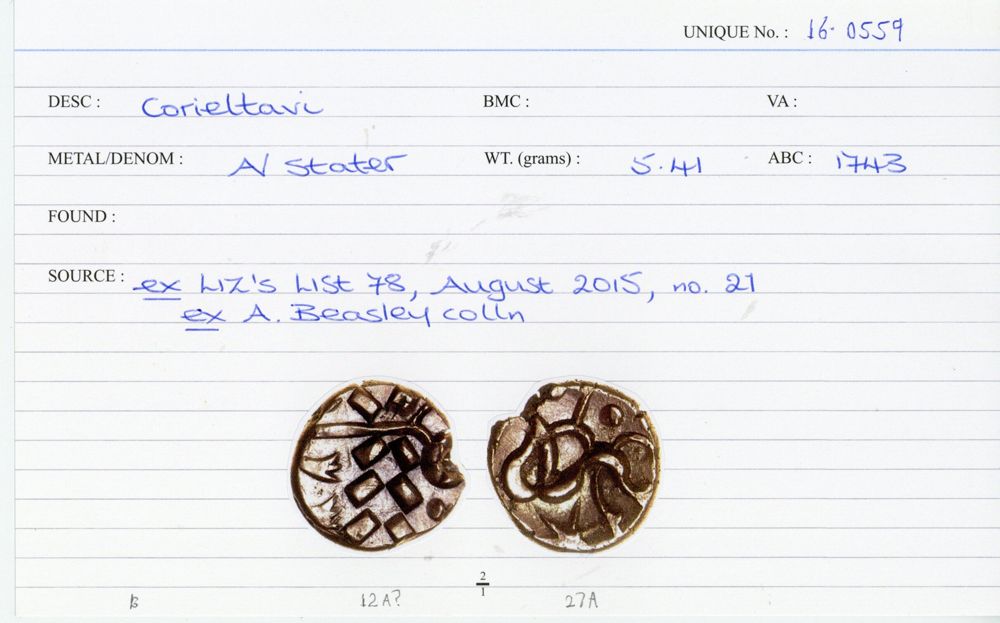 UNIQUE No. : 16-0559
DESC : Corieltavi BMC : VA :
METAL/DENOM : A/ Stater WT. (grams) : 5.41 ABC : 1743
FOUND :
SOURCE : ex Liz's List 78, August 2015, no. 21
ex A. Beasley colln
2
1
B 12A? 27A